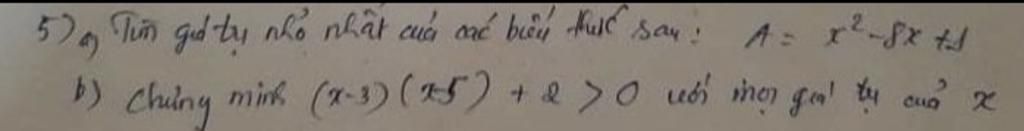 5) a) Tìm giá trị nhỏ nhất của các biểu thức sau: A = x²-8x+1
b) Chứng minh (x-3)(x-5) + 2 > 0 với mọi giá trị của x